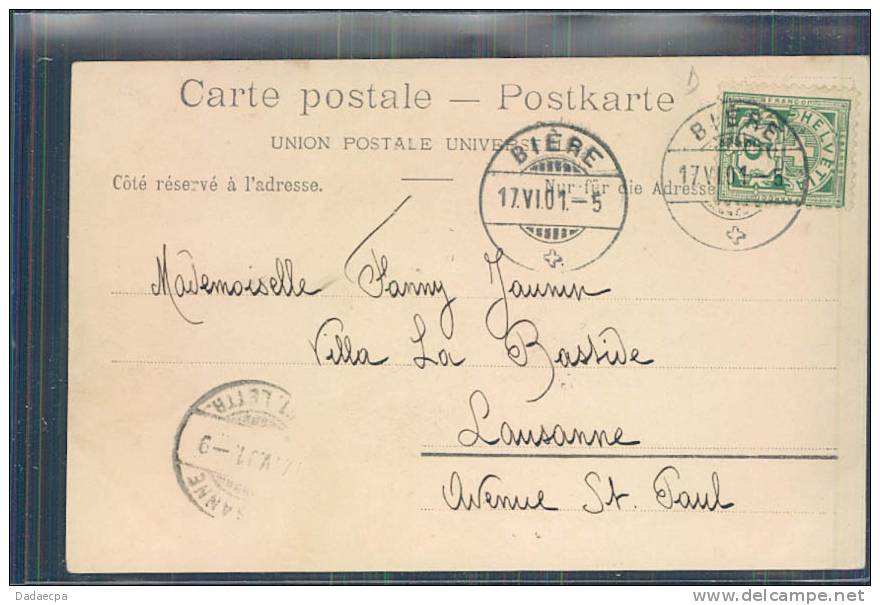 Carte postale — Postkarte
UNION POSTALE UNIVERS
Côté réservé à l'adresse.
Nur für die Adresse
BIÈRE
17.VI.01.-5
BIÈRE
17.VI.01.-5
HELVETIA
5
Mademoiselle Fanny Jaunin
Villa La Bastide
Lausanne
Avenue St. Paul
LETTR.
Dadaecpa
http://www.delcampe.net